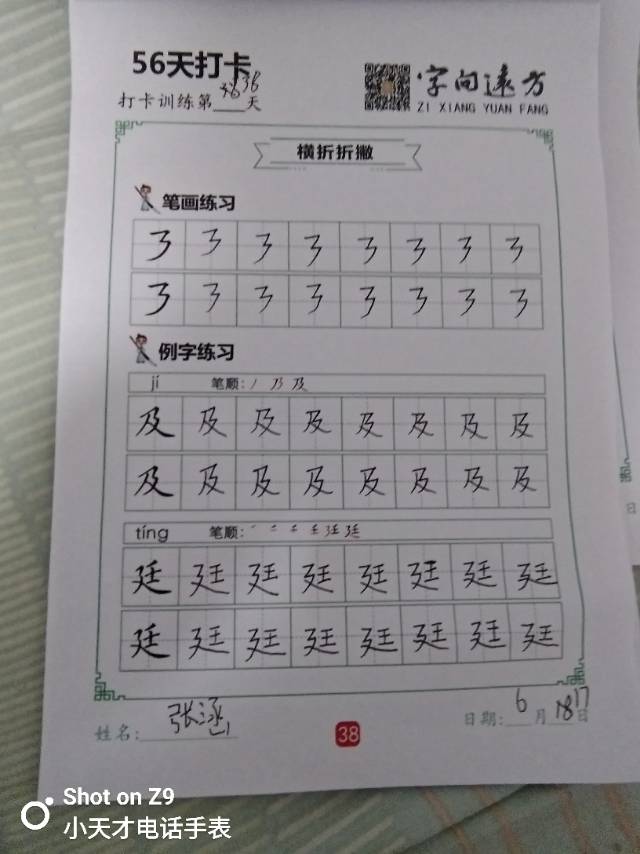 56天打卡
字向远方
打卡训练第3638天
ZI XIANG YUAN FANG
横折折撇
笔画练习
㇋ ㇋ ㇋ ㇋ ㇋ ㇋ ㇋ ㇋
㇋ ㇋ ㇋ ㇋ ㇋ ㇋ ㇋ ㇋
例字练习
jí 笔顺:丿 乃 及
及 及 及 及 及 及 及 及
及 及 及 及 及 及 及 及
tíng 笔顺:
廷 廷 廷 廷 廷 廷 廷 廷
廷 廷 廷 廷 廷 廷 廷 廷
姓名:张涵
38
日期:6月1817日
Shot on Z9
小天才电话手表